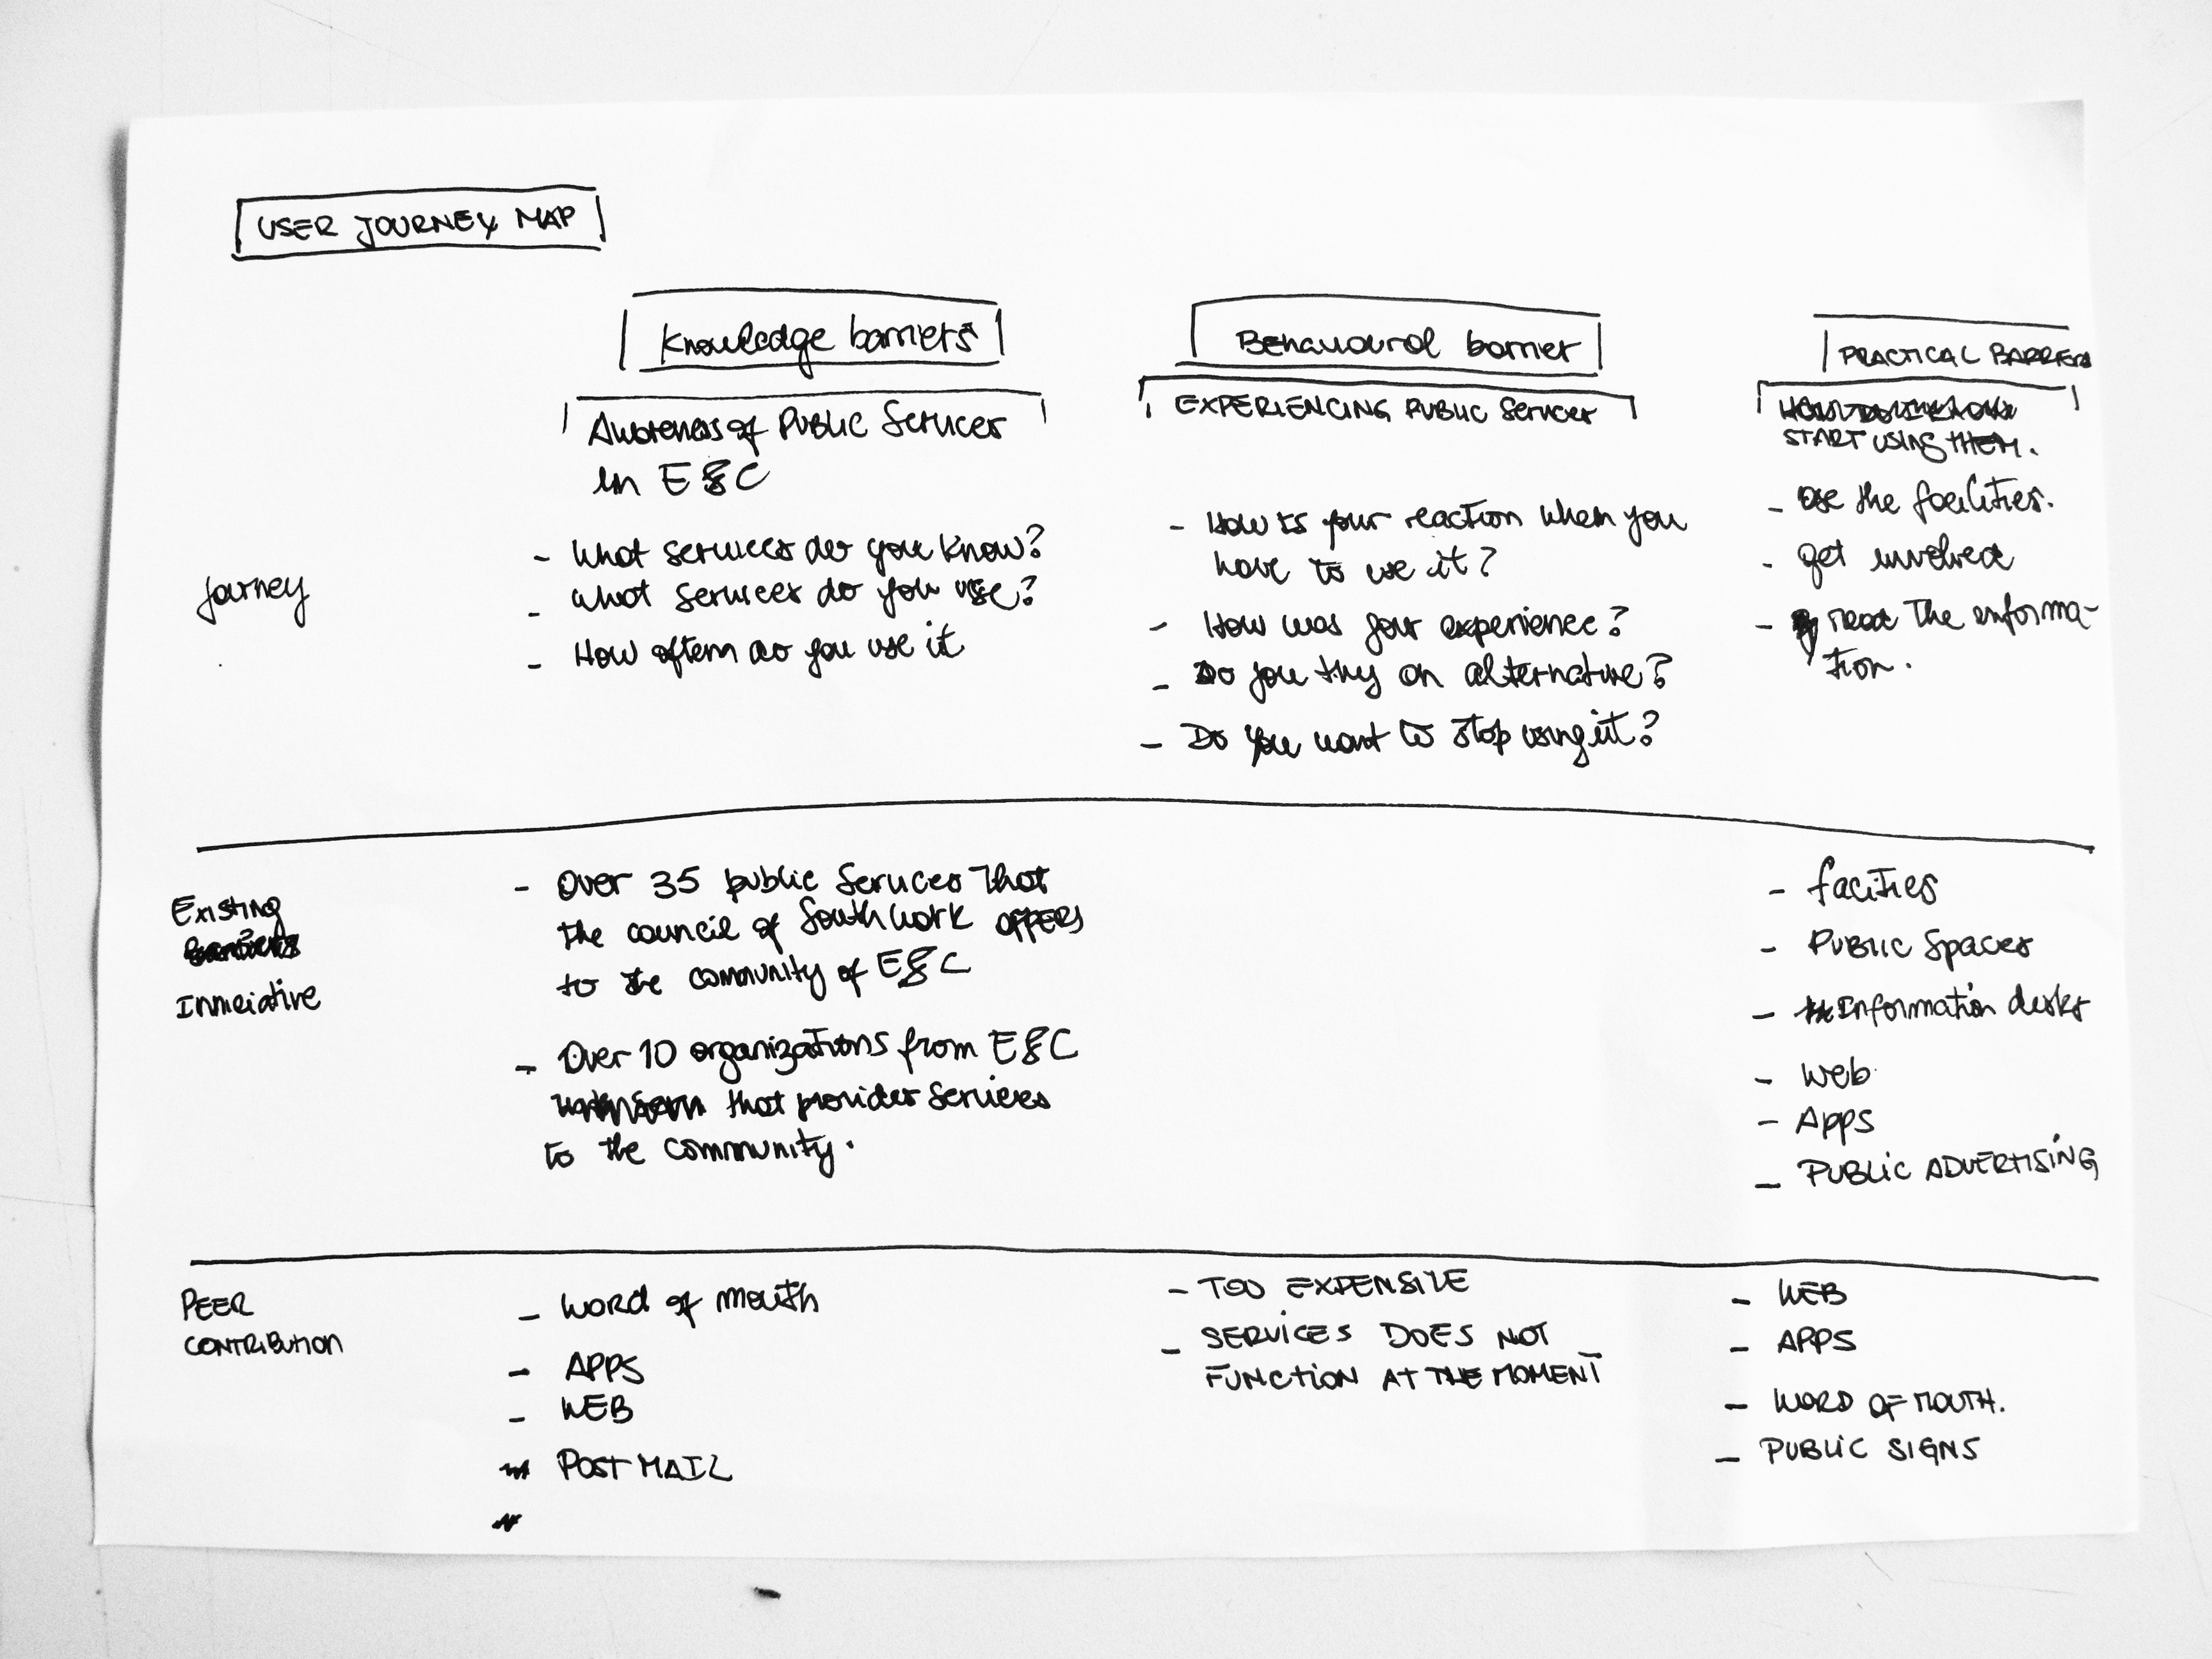 USER JOURNEY MAP
Knowledge barriers
Awareness of Public Services
in E&C
Behavioural barrier
EXPERIENCING PUBLIC Services
PRACTICAL BARRIERS
START USING THEM.
Journey
- What services do you know?
- what services do you use?
- How often do you use it
- How is your reaction when you
have to use it?
- How was your experience?
- Do you try an alternative?
- Do you want to stop using it?
- Use the facilities.
- get involved
- read the informa-
tion.
Existing
Inniciative
- Over 35 public services that
the council of Southwork OFFERS
to the community of E&C
- Over 10 organizations from E&C
that provides services
to the community.
- facities
- PUBLIC Spaces
- Information desks
- Web
- Apps
- PUBLIC ADVERTISING
PEER
CONTRIBUTION
- word of mouth
- APPS
- WEB
POST MAIL
- TOO EXPENSIVE
- SERVICES DOES NOT
FUNCTION AT THE MOMENT
- WEB
- APPS
- WORD OF MOUTH.
- PUBLIC SIGNS